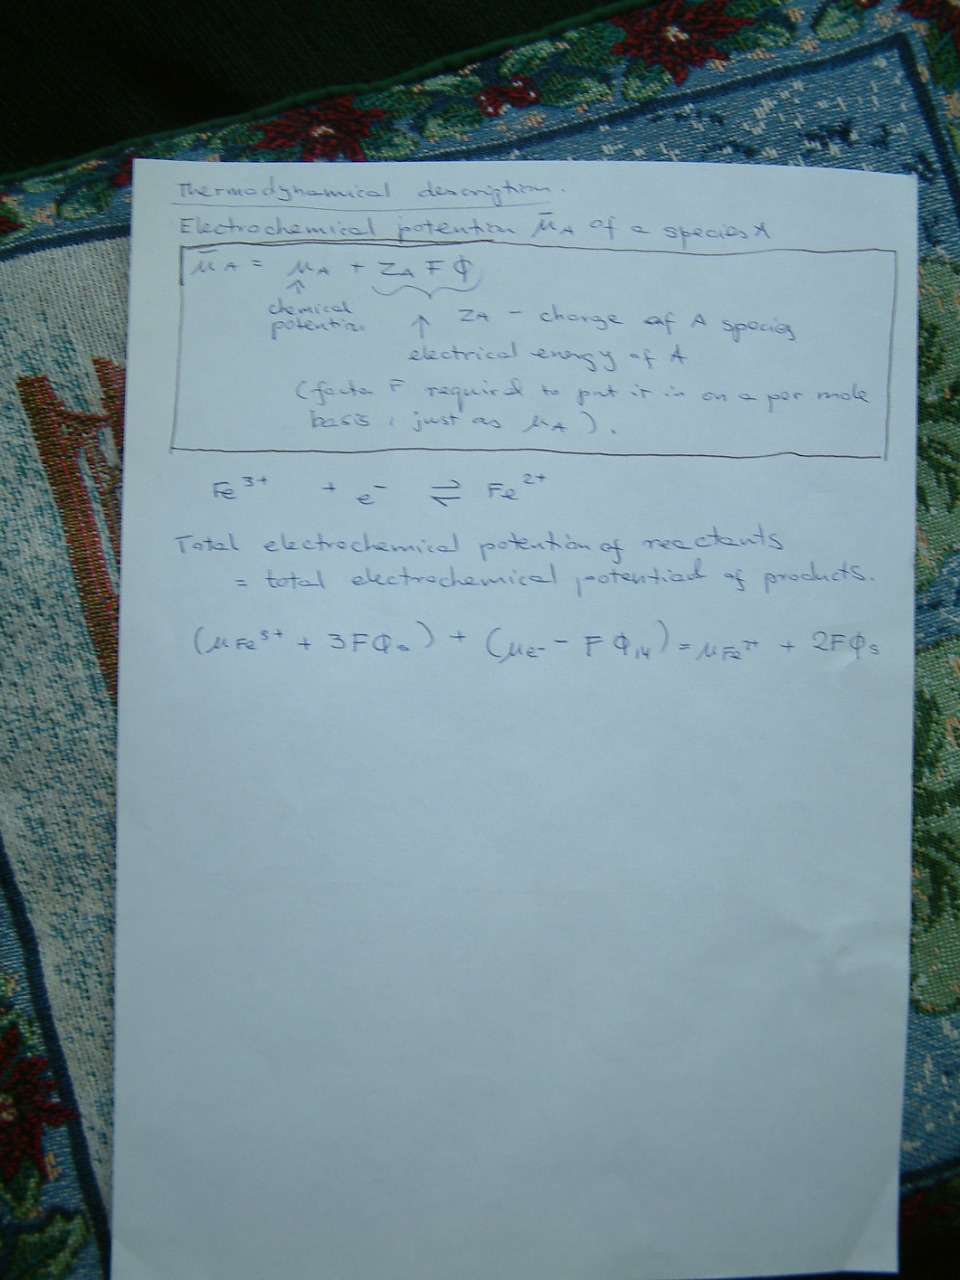 Thermodynamical description.
Electrochemical potention μ̄A of a species A
μ̄A = μA + ZA F Φ
↑
chemical
potention
ZA - charge of A species
↑
electrical energy of A
(facto F required to put it in on a per mole
basis, just as μA).
Fe3+ + e- ⇌ Fe2+
Total electrochemical potention of reactants
= total electrochemical potential of products.
(μFe3+ + 3FΦs) + (μe- - FΦM) = μFe2+ + 2FΦs